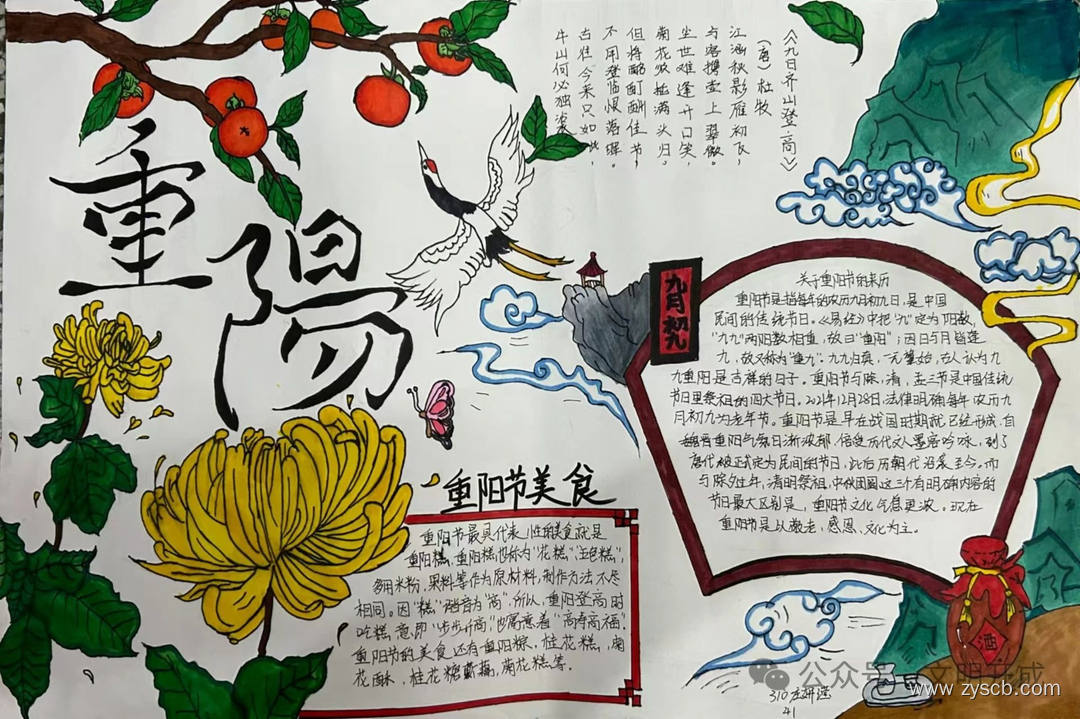 重陽
《九日齐山登高》
(唐) 杜牧
江涵秋影雁初飞，
与客携壶上翠微。
尘世难逢开口笑，
菊花须插满头归。
但将酩酊酬佳节，
不用登临恨落晖。
古往今来只如此，
牛山何必独
九月初九
关于重阳节的来历
重阳节是指每年的农历九月初九日，是中国
民间的传统节日。《易经》中把"九"定为阳数，
"九九"两阳数相重，故曰"重阳"；因日与月皆逢
九，故又称为"重九"。九九归真，一元肇始，古人认为九
九重阳是吉祥的日子。重阳节与除，清，盂三节是中国传统
节日里祭祖的四大节日。2021年12月28日法律明确每年农历九
月初九为老年节。重阳节是早在战国时期就已经形成，自
重阳气氛日渐浓郁，倍受历代文人墨客吟咏，到了
唐代被正式定为民间的节日，此后历朝代沿袭至今。而
与除夕过年，清明祭祖，中秋团圆这三个有明确内容的
节日最大区别是，重阳节文化气息更浓。现在
重阳节是从敬老，感恩，文化为主。
重阳节美食
重阳节最具代表性的美食就是
重阳糕，重阳糕也称为"花糕""五色糕"，
多用米粉，果料等作为原材料，制作方法不尽
相同。因"糕"谐音为"高"，所以，重阳登高时
吃糕意即"步步升高"也寓意着"高寿高福"。
重阳节的美食还有重阳粽，桂花糕，菊
花酥，桂花糖藕，菊花糕等。
酒
310
41
公众号
www.zyscb.com